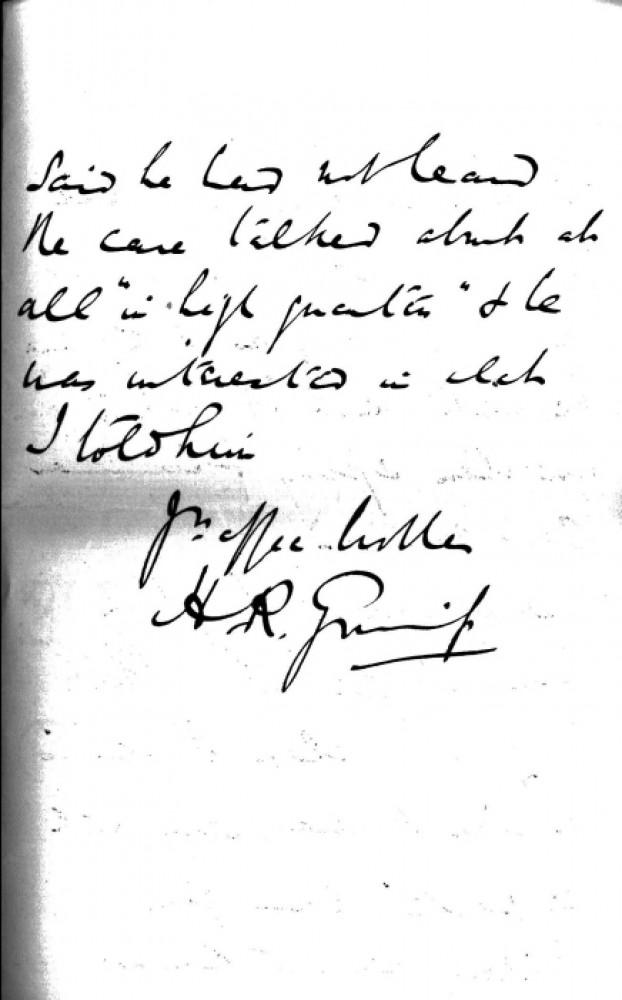 Said he had not heard
the case talked about at
all "in high quarters" & he
was interested in what
I told him
Yrs affec brother
H R.